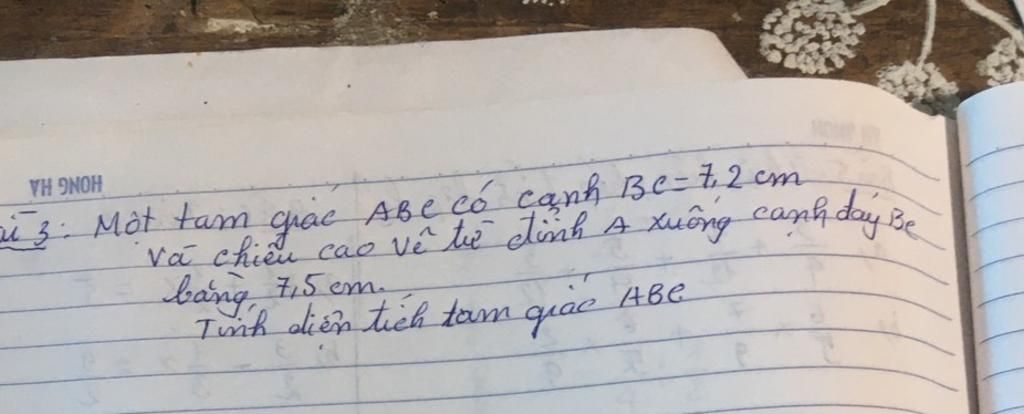 HONG HA
ài 3: Một tam giác ABC có cạnh BC = 7,2 cm
và chiều cao vẽ từ đỉnh A xuống cạnh đáy BC
bằng 7,5 cm.
Tính diện tích tam giác ABC